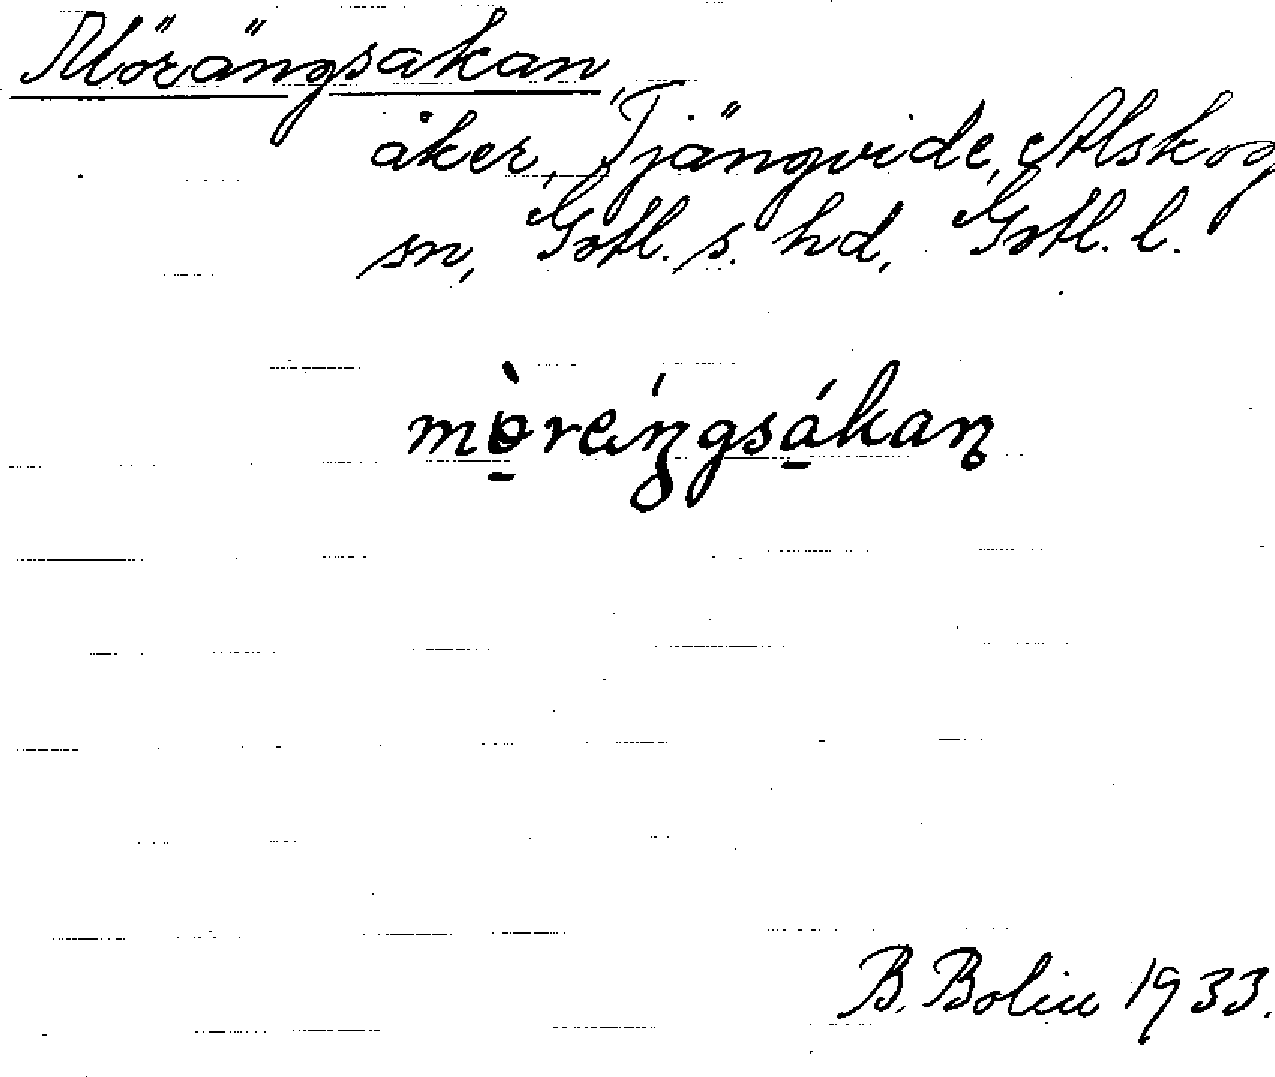 Mörängsakan,
åker, Tjängvide, Alskog
sn, Gotl. s. hd, Gotl. l.
mòreíŋgsákaŋ
B. Bolin 1933.